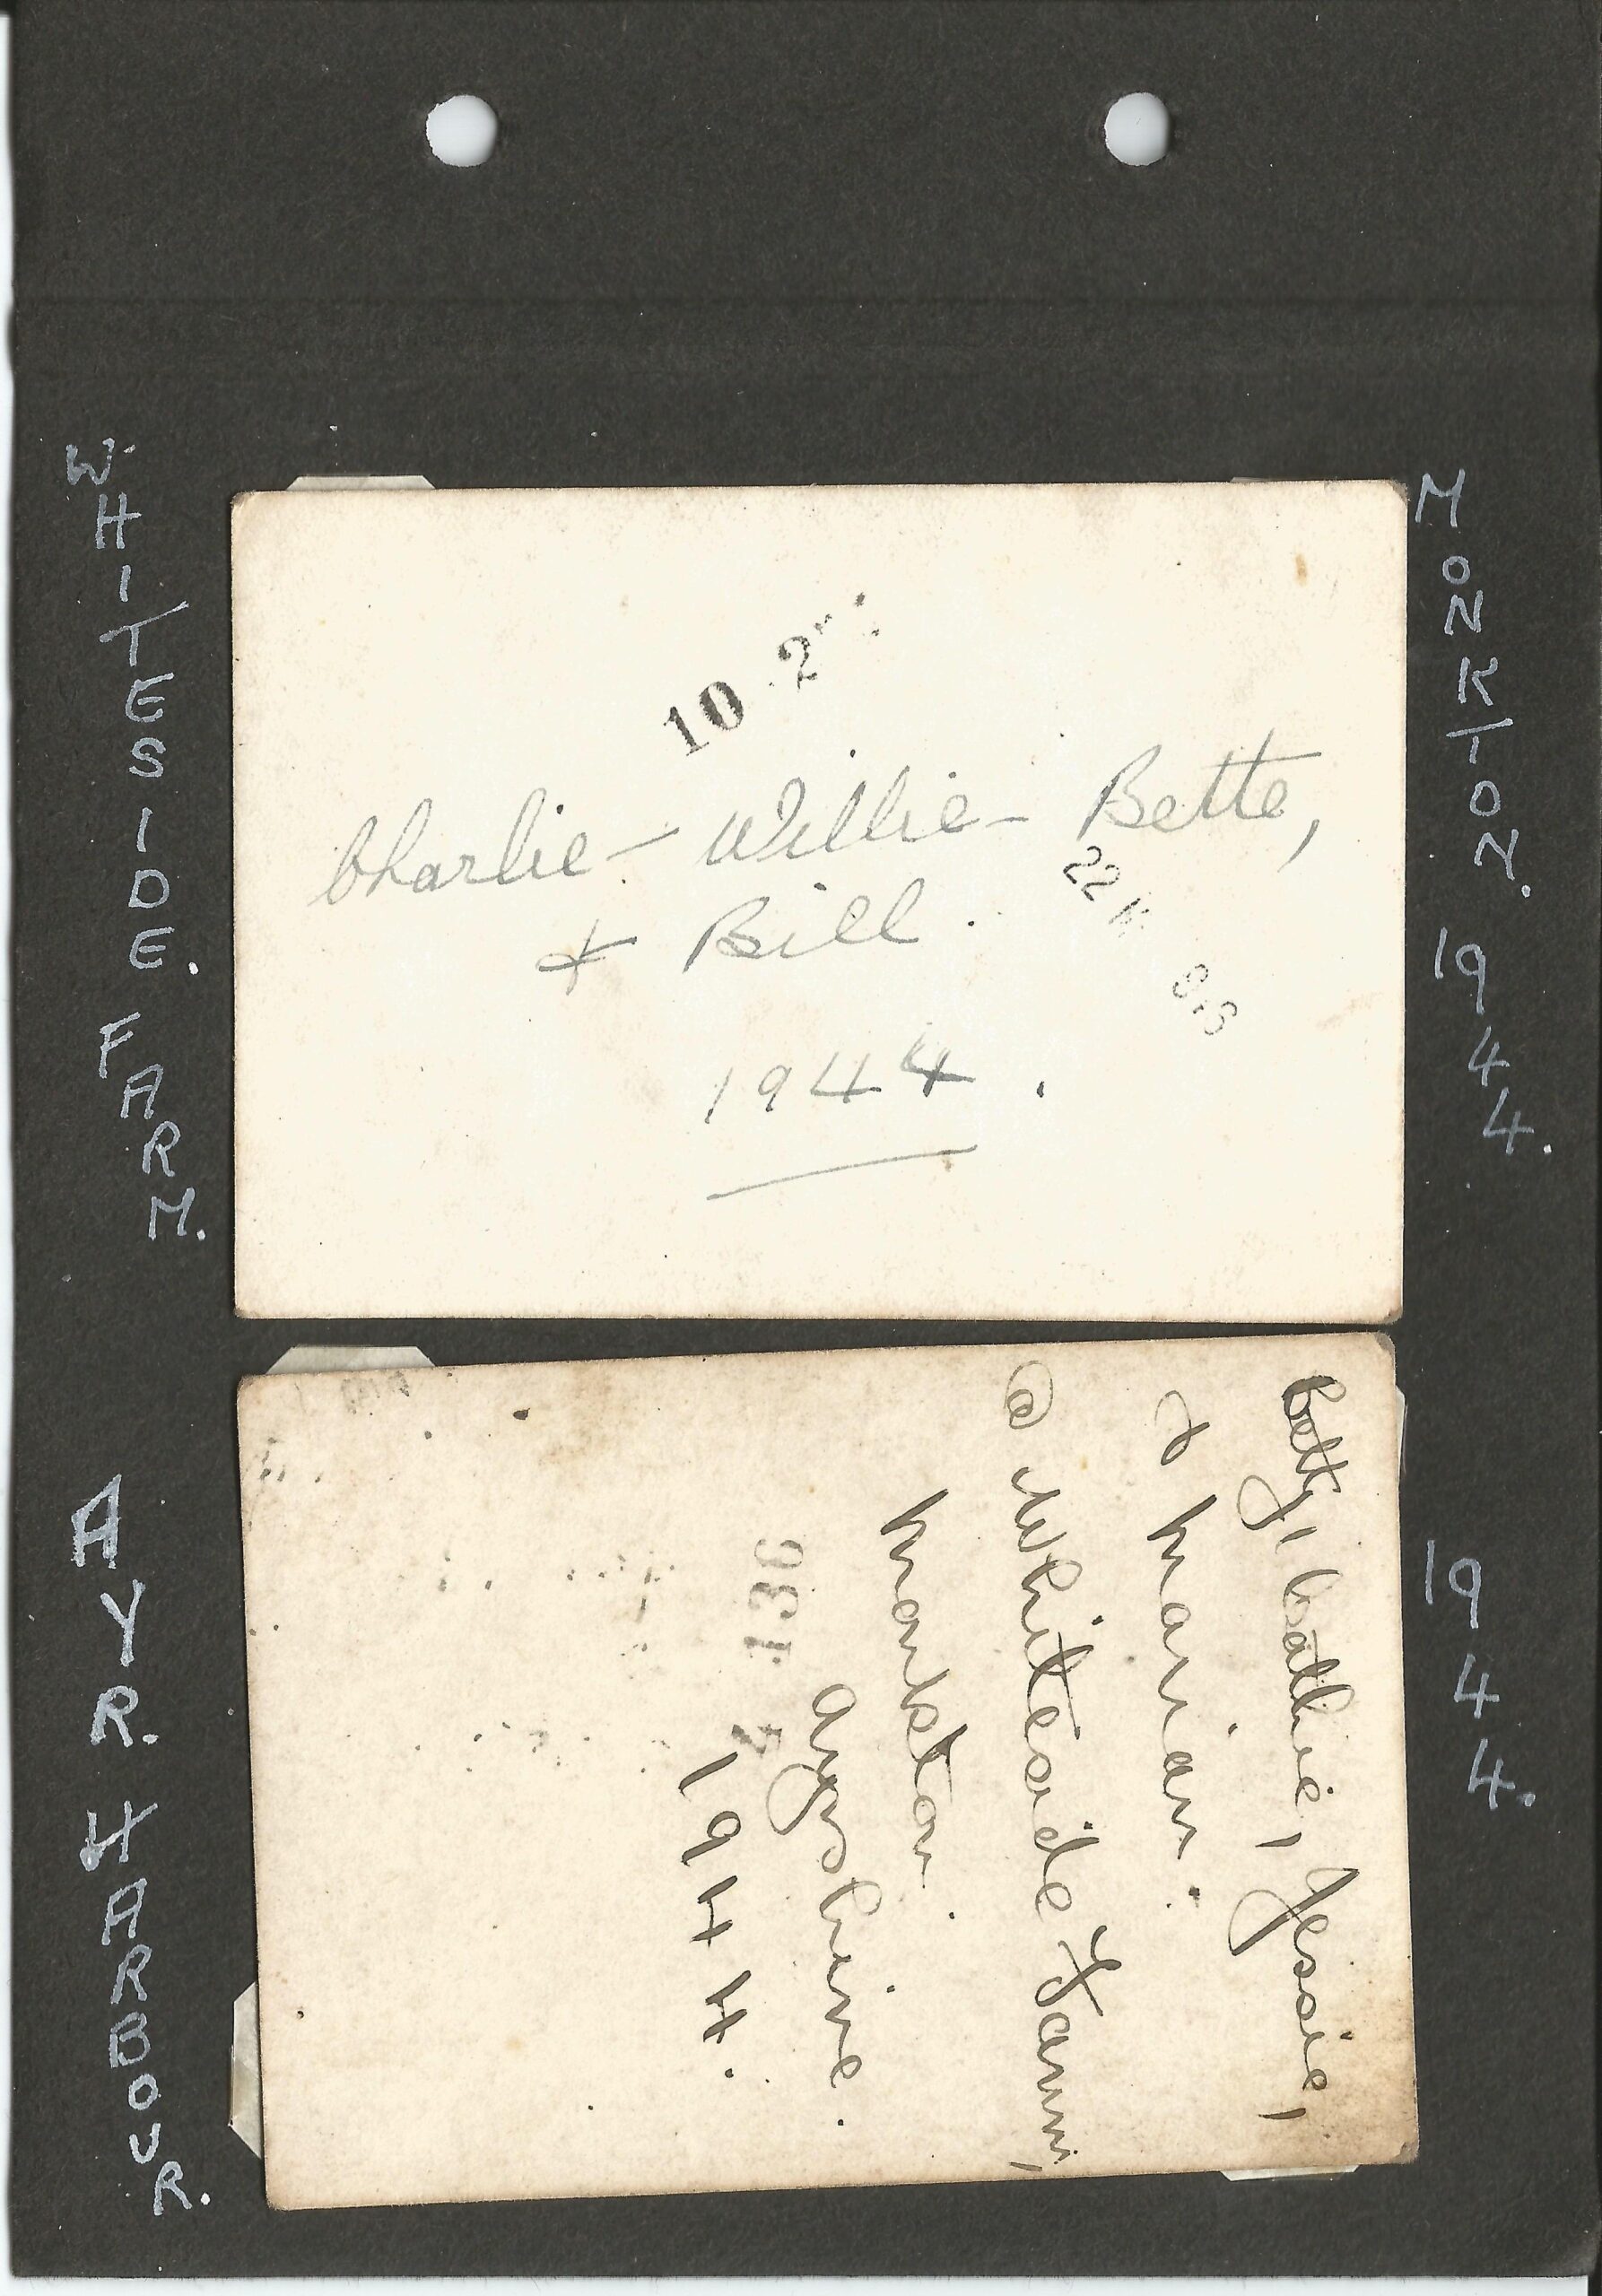 WHITESIDE. FARM.
MONKTON. 1944.
10 2
Charlie - Willie - Bette,
& Bill.
22
1944.
AYR. HARBOUR.
1944.
Betty, Cathie, Jessie,
& Marian.
@ Whiteside Farm,
Monkton.
Ayrshire.
1944.
4 136